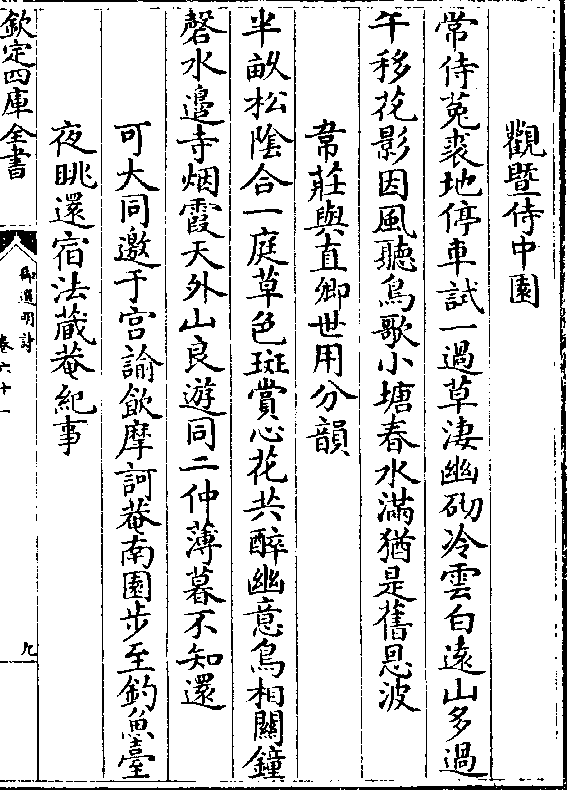 觀暨侍中園
常侍菟裘地停車試一過草淒幽砌冷雲白遠山多過
午移花影因風聽鳥歌小塘春水滿猶是舊恩波
韋莊與直卿世用分韻
半畝松陰合一庭草色斑賞心花共醉幽意鳥相關鐘
磬水邉寺烟霞天外山良遊同二仲薄暮不知還
可大同邀于宫諭飲摩訶菴南園步至釣魚臺
夜眺還宿法蔵菴紀事
欽定四庫全書
御選明詩
卷六十一
九